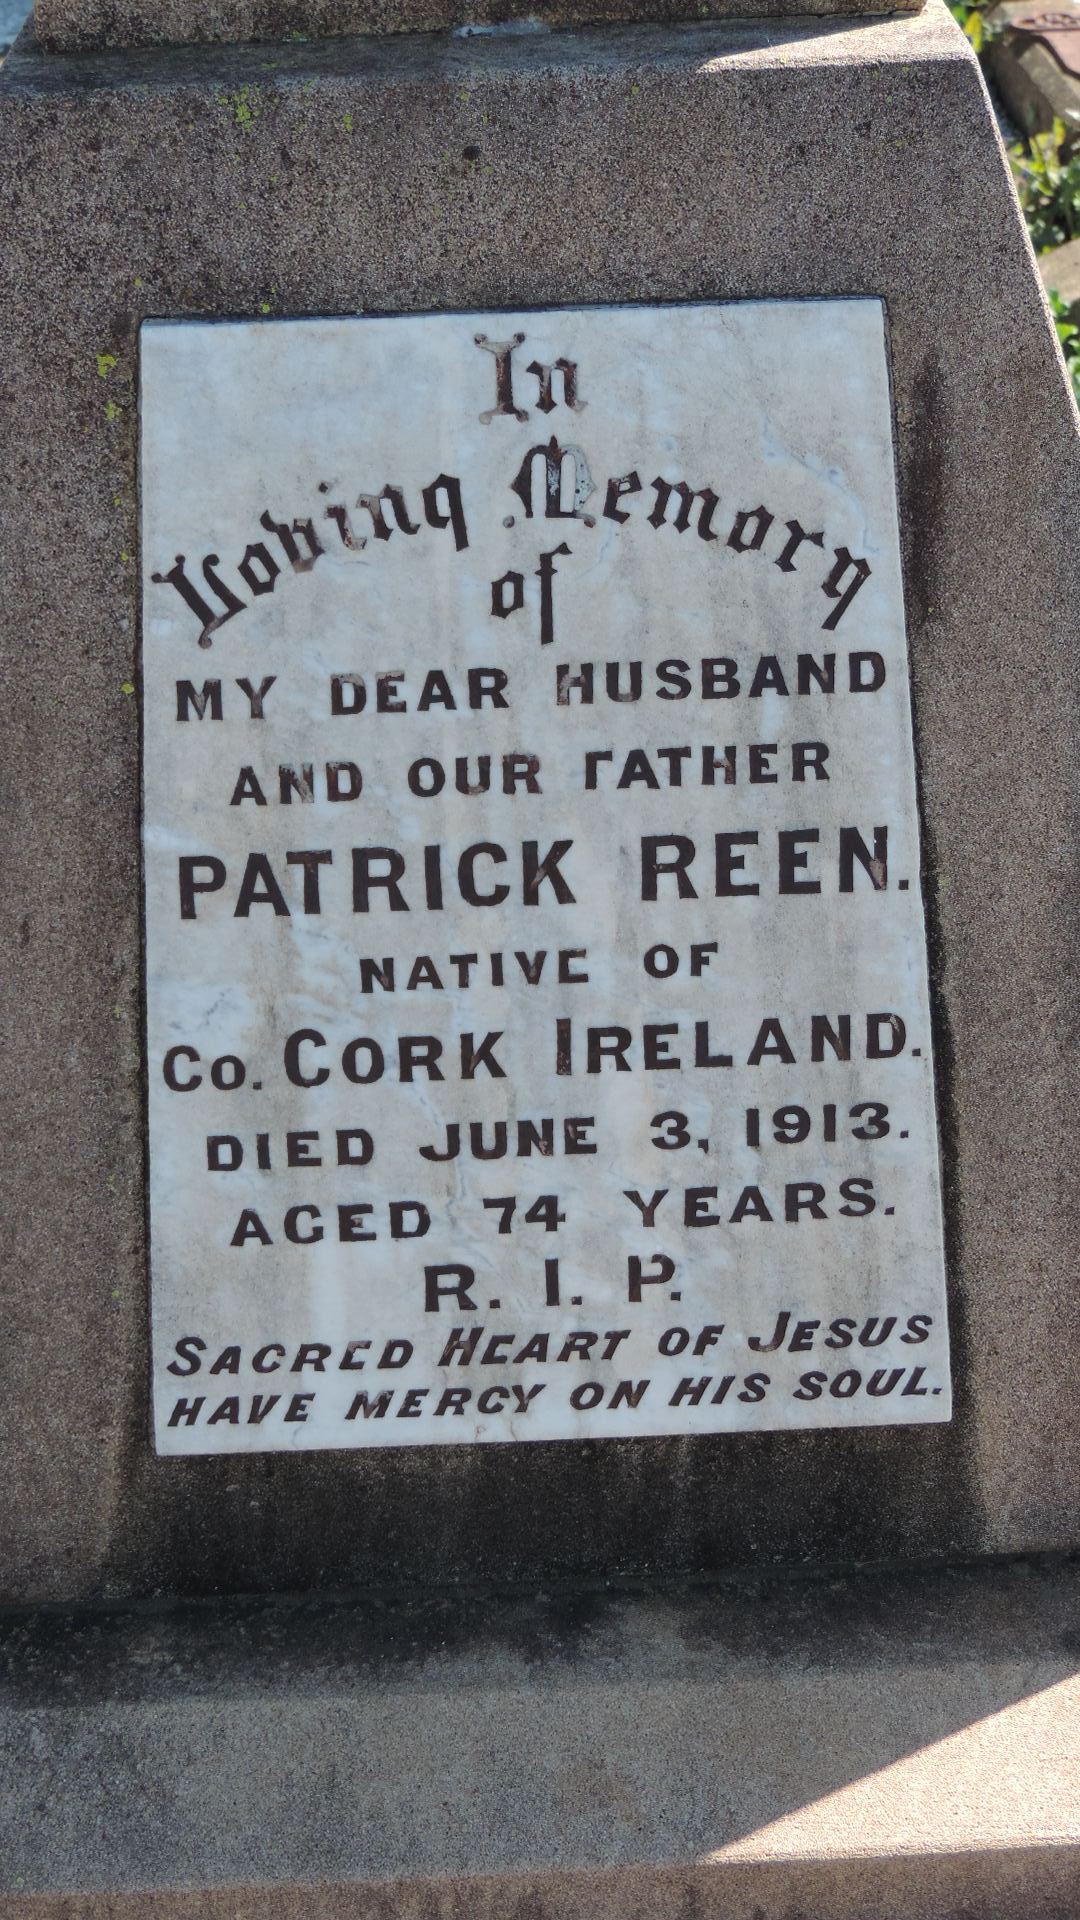 In
Loving Memory
of
MY DEAR HUSBAND
AND OUR FATHER
PATRICK REEN.
NATIVE OF
Co. CORK IRELAND.
DIED JUNE 3, 1913.
AGED 74 YEARS.
R. I. P.
SACRED HEART OF JESUS
HAVE MERCY ON HIS SOUL.